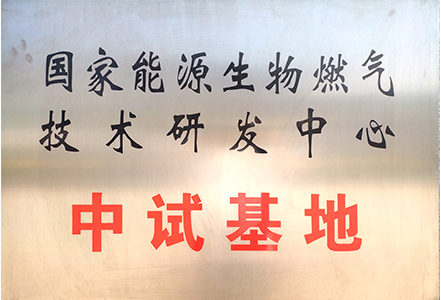 国家能源生物燃气
技术研发中心
中试基地